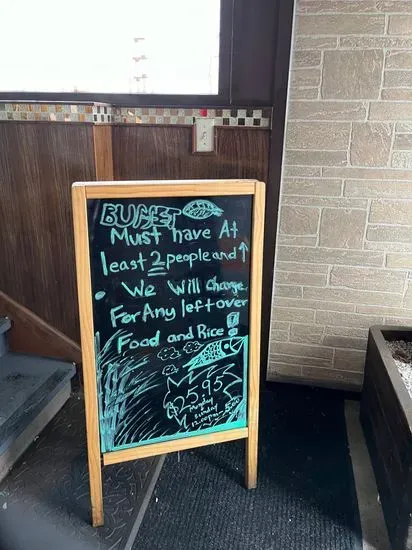 BUFFET
Must have At
least 2 people and ↑
We Will Charge
For Any leftover
Food and Rice!
$25.95
Monday
Sunday